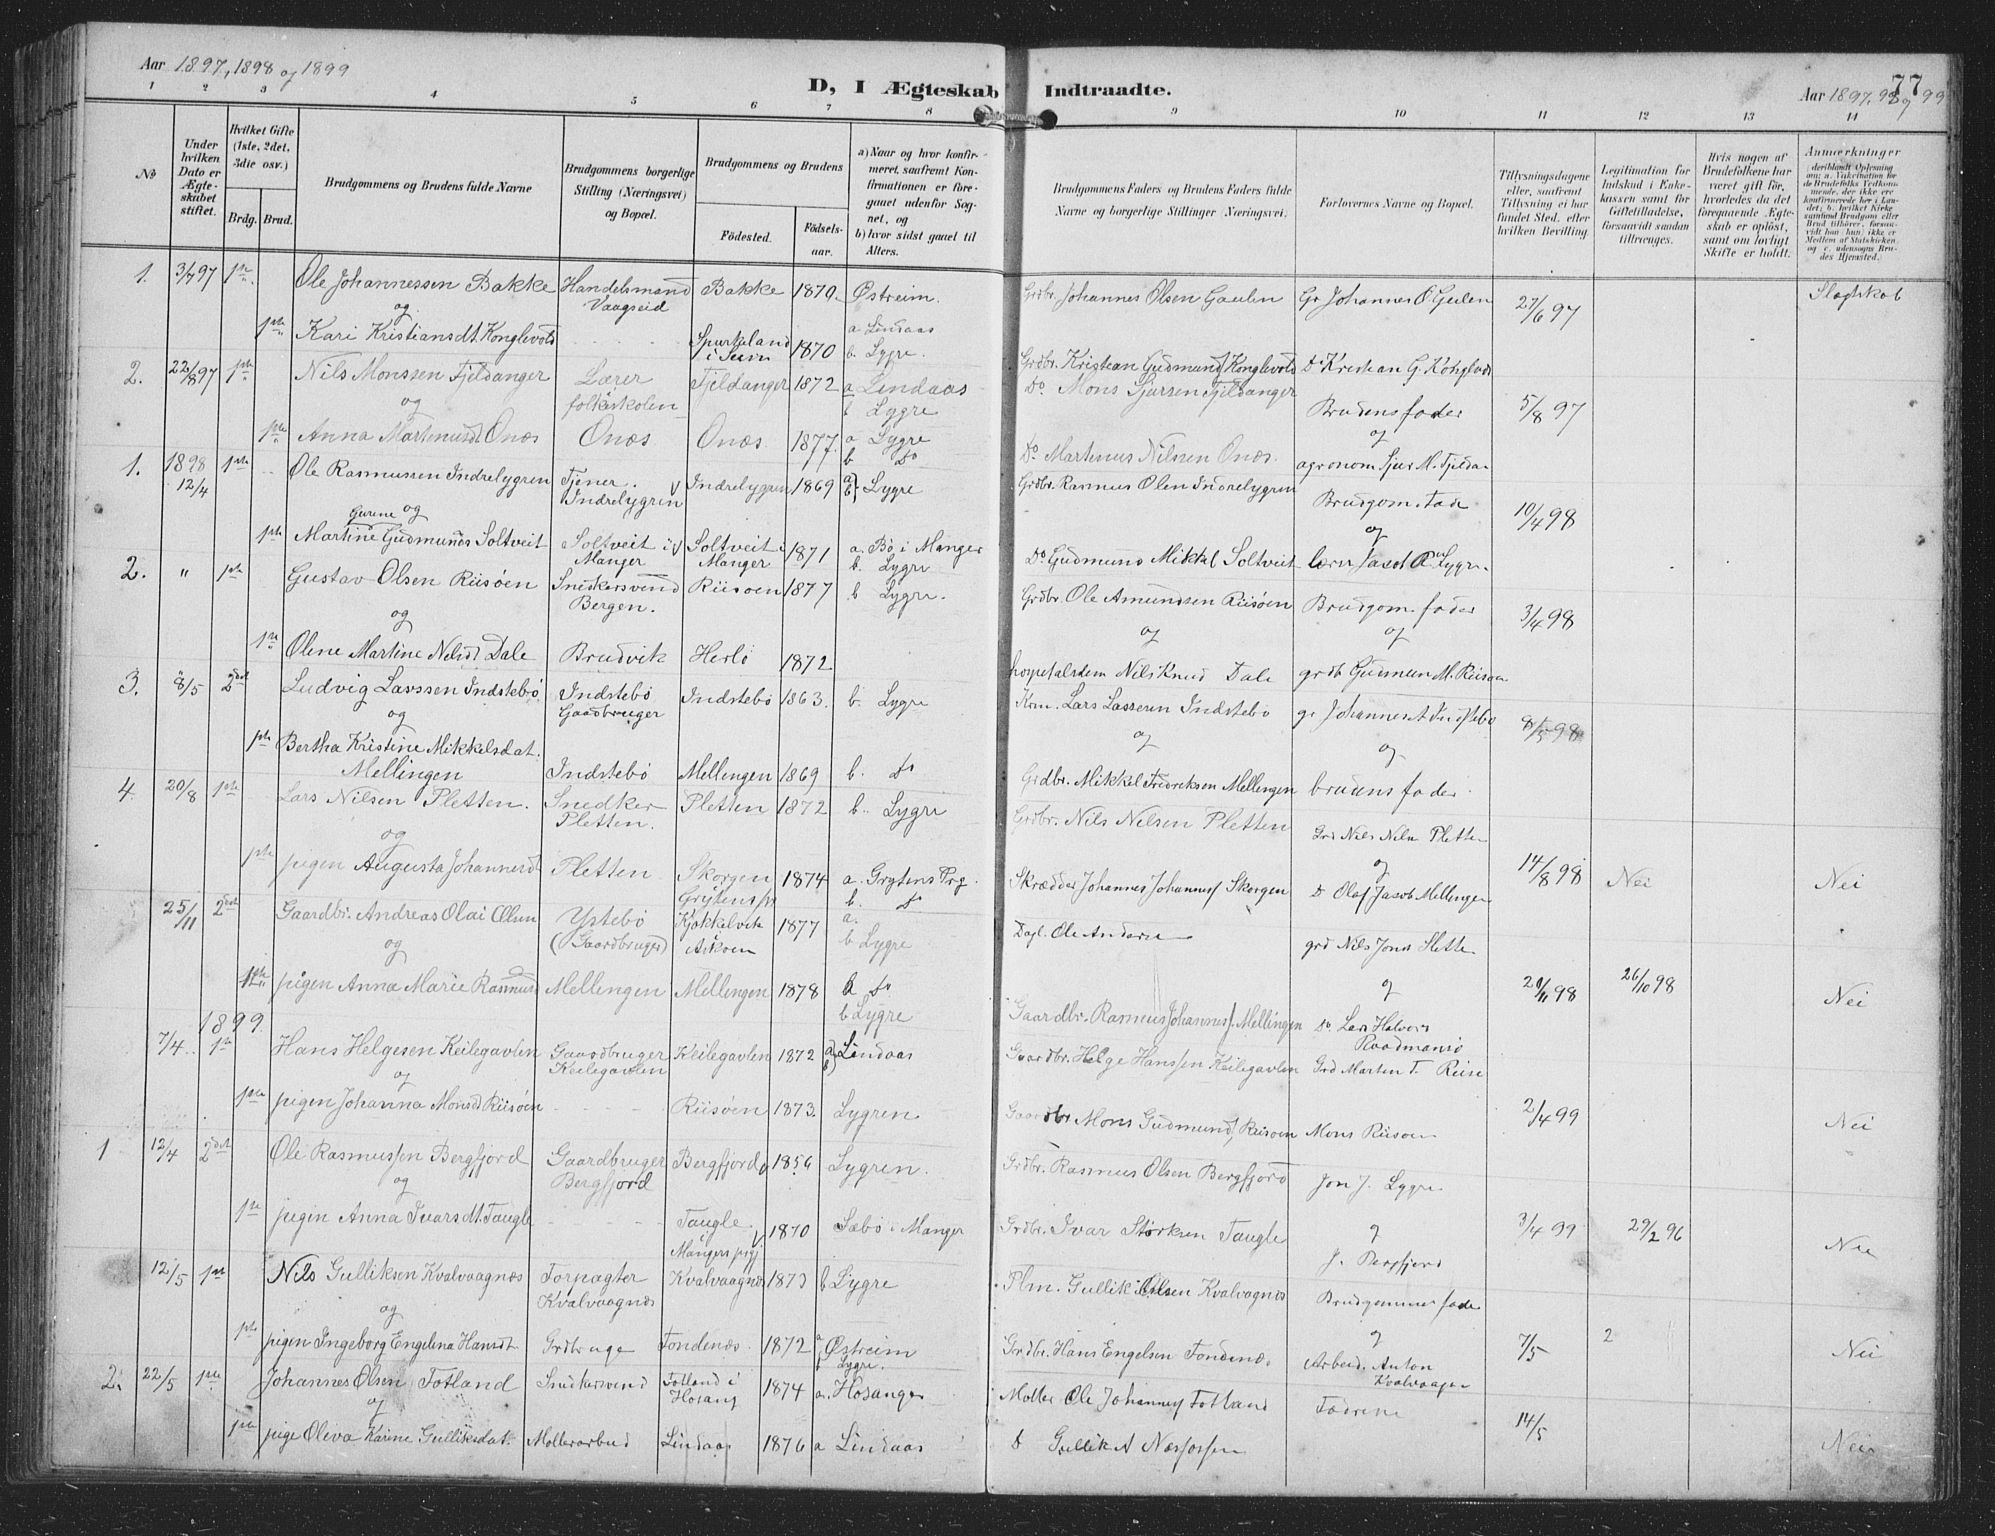 Aar 1897, 1898 og 1899
D, I Ægteskab Indtraadte.
Aar 1897, 98 og 99
77
1 2 3 4 5 6 7 8 9 10 11 12 13 14
No
Under hvilken Dato er Ægteskabet stiftet.
Hvilket Gifte (1ste, 2det, 3die osv.)
Brdg. Brud.
Brudgommens og Brudens fulde Navne
Brudgommens borgerlige Stilling (Næringsvei) og Bopæl.
Brudgommens og Brudens
Fødested. Fødselsaar.
a) Naar og hvor konfirmeret, saafremt Konfirmationen er foregaaet udenfor Sognet, og
b) hvor sidst gaaet til Alters.
Brudgommens Faders og Brudens Faders fulde Navne og borgerlige Stillinger (Næringsvei).
Forlovernes Navne og Bopæl.
Tillysningsdagene eller, saafremt Tillysning ei har fundet Sted, efter hvilken Bevilling.
Legitimation for Indskud i Enkekassen samt for Giftetilladelse, forsaavidt saadan tiltrænges.
Hvis nogen af Brudefolkene har været gift før, hvorledes da det foregaaende Ægteskab er opløst, samt om lovligt Skifte er holdt.
Anmærkninger
1. 3/7 97 1ste Ole Johannessen Bakke Handelsmand Bakke 1870. Østreim. Grdbr. Johannes Olsen Gaulen Gr Johannes O Gulen 27/6 97 Slægtskab
og Vaagseid
1ste Kari Kristiansdt. Konglevold Spurkeland 1870 a Lindaas
b. Lygre. Grdbr. Kristian Gudmunds Konglevold Do Kristian G. Konglevold
2. 22/8 97 1ste Nils Monssen Fjeldanger Lærer Fjeldanger 1872 a Lindaas Do Mons Sjursen Fjeldanger
og folkeskolen b Lygre Brudens fader 5/8 97
1ste Anna Martinusdt Onæs Onæs Onæs 1877. a Lygre og
b Do Do Martinus Nilsen Onæs. agronom Sjur M. Fjelda
1. 1898 12/4 1ste Ole Rasmussen Indrelygren Tjener. Indrelygren Indrelygren 1869 a b Lygre Grdbr. Rasmus Olsen Indrelygren Brudgom. fade
Gurine og og 10/4 98
1ste Martine Gudmunds Soltveit Soltveit i Manger Soltveit i Manger 1871 a. Bø i Manger b. Lygre Do Gudmund Mikkel Soltveit
2. " 1ste Gustav Olsen Riisøen Snedkersvend Bergen. Riisøen 1877 b Lygre. Grdbr. Ole Amundsen Riisøen Brudgom. fader 3/4 98
og og og
1ste Oline Martine Nilsdt Dale Brudvik Herlø 1872 Nils Knud Dale grdb Gudmun M. Riisøen
3. 8/5 2det Ludvig Larssen Indstebø Indstebø Gaardbruger Indstebø 1863. b. Lygre Lars Larssen Indstebø Johannes A Indstebø 8/5 98
og og og
1ste Bertha Kristine Mikkelsdat. Mellingen Indstebø Mellengen 1869 b. Do Grdbr. Mikkel Fredreksen Mellengen brudens fader.
4. 20/8 1ste Lars Nilsen Pletten. Snedker Pletten. Pletten 1872 b. Lygre Grdbr. Nils Nelsen Pletten Grd Nils Nilse Plette
og og 14/8 98
1ste pigen Augusta Johannesdt Pletten Skorgen 1874 a. Grytens Prg. b. Do Skrædder Johannes Johannes/ Skorgen D Olaf Jacob Mellengen Nei Nei
25/11 2det Gaardbr. Andreas Olai Olsen Ystebø (Gaardbruger) Kjøkkelvik i Askøen 1877 a. b Lygre Dagl. Ole Anders grd Nils Jons Slette
og og
1ste pigen Anna Marie Rasmusd Mellengen Mellengen 1878 a Do b Lygre Gaardbr. Rasmus Johannes/ Mellingen Do Lars Halvors 20/11 98 26/10 98 Nei
1899
7/4. 1ste Hans Helgesen Keilegavlen Gaardbruger Keilegavlen Keilegavlen 1872 a) b) Lindaas Gaardbr. Helge Hanssen Keilegavlen Grd Marten T. Reise
og
1ste pigen Johanna Monsd Riisøen Riisøen 1873. Lygren Gaardbr Mons Gudmunds Riisøen Mons Riisøen 2/4 99 Nei
1 12/4 2det Ole Rasmussen Bergfjord Gaardbruger Bergfjord Bergfjord 1856 Lygren. Grdbr. Rasmus Olsen Bergfjord Jon J. Lygre
og og
1ste pigen Anna Ivarsdt. Taugle Taugle i Mangers prgj 1870 Sæbø i Manger Grdbr. Ivar Størksen Taugle J. Bergfjord 3/4 99 29/2 96 Nei
12/5 1ste Nils Gulliksen Kvalvaagnæs Forpagter Kvalvaagnæs Kvalvaagnæs 1873 b Lygre Plm. Gullik Olsen Kvalvagnæs Brudgommens fade
og og
1ste pigen Ingeborg Engelina Hansdt. Grdbruge Fondenæs. 1872 a Østreim Lygre. Grdbr. Hans Engelsen Fondenæs Arbeid. Anton Kvalvaagen 7/5 2 Nei
2. 22/5 1ste Johannes Olsen Fotland Snedkersvend Fotland i Hosang 1874 a. Hosanger Møller Ole Johannes/ Fotland Fædrene
og 14/5
1ste pige Oliva Karine Gulliksdat. Møllerarbeid Lindaas 1876 a Lindaas D Gullik A Nessossen Nei